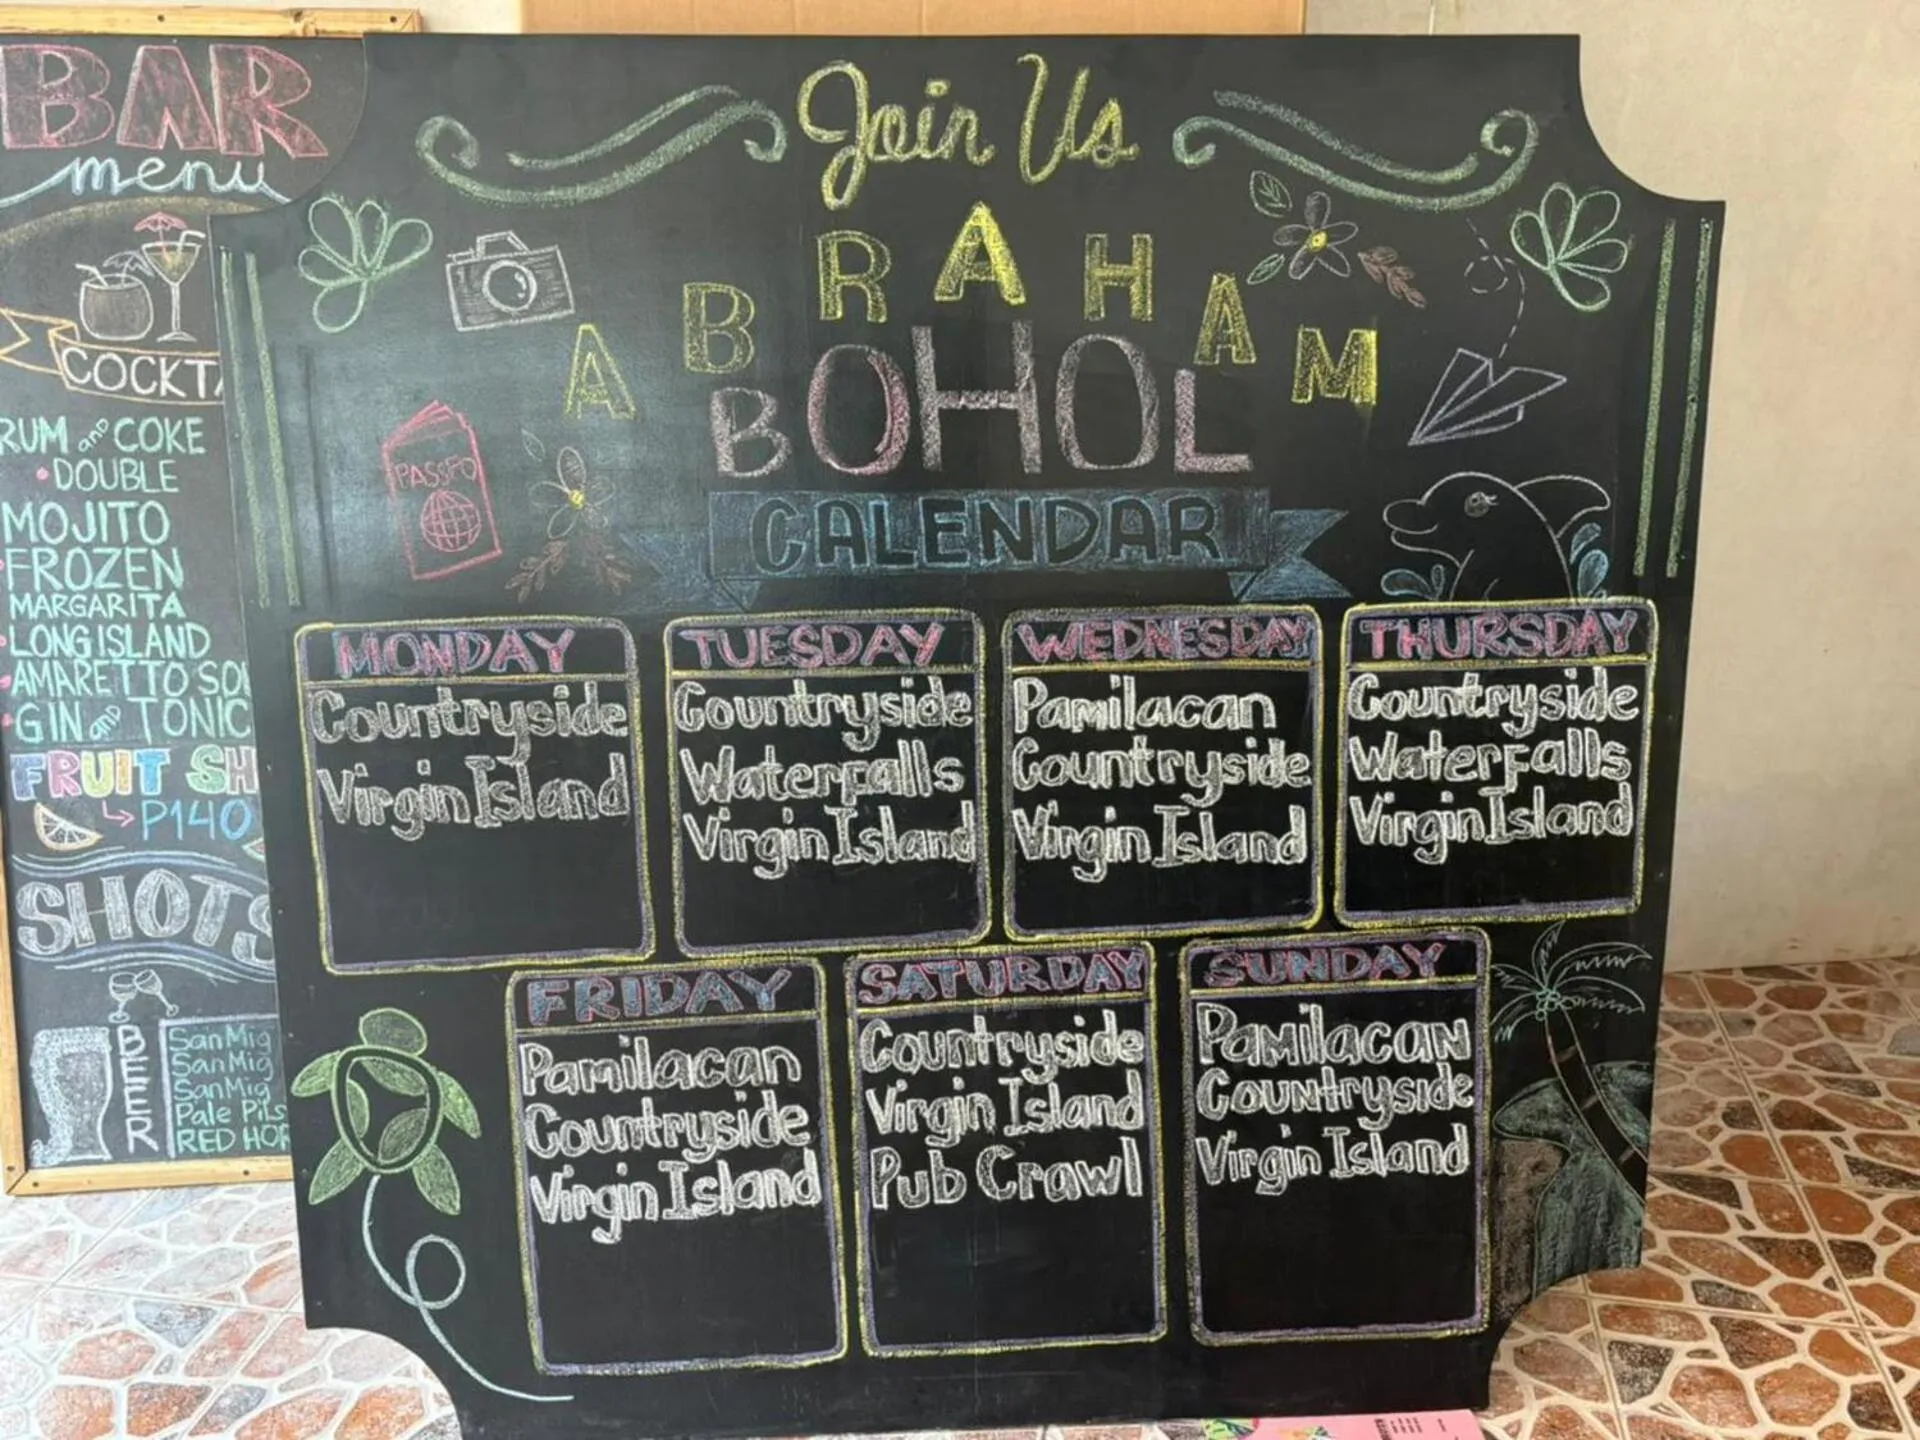 BAR
menu
RUM and COKE
DOUBLE
MOJITO
FROZEN
MARGARITA
LONG ISLAND
AMARETTO
GIN and TONIC
FRUIT
P140
SHOTS
BEER
San Mig
San Mig
San Mig
Pale Pils
RED
Join Us
ABRAHAM
BOHOL
CALENDAR
MONDAY
Countryside
Virgin Island
TUESDAY
Countryside
Waterfalls
Virgin Island
WEDNESDAY
Pamilacan
Countryside
Virgin Island
THURSDAY
Countryside
Waterfalls
Virgin Island
FRIDAY
Pamilacan
Countryside
Virgin Island
SATURDAY
Countryside
Virgin Island
Pub Crawl
SUNDAY
Pamilacan
Countryside
Virgin Island